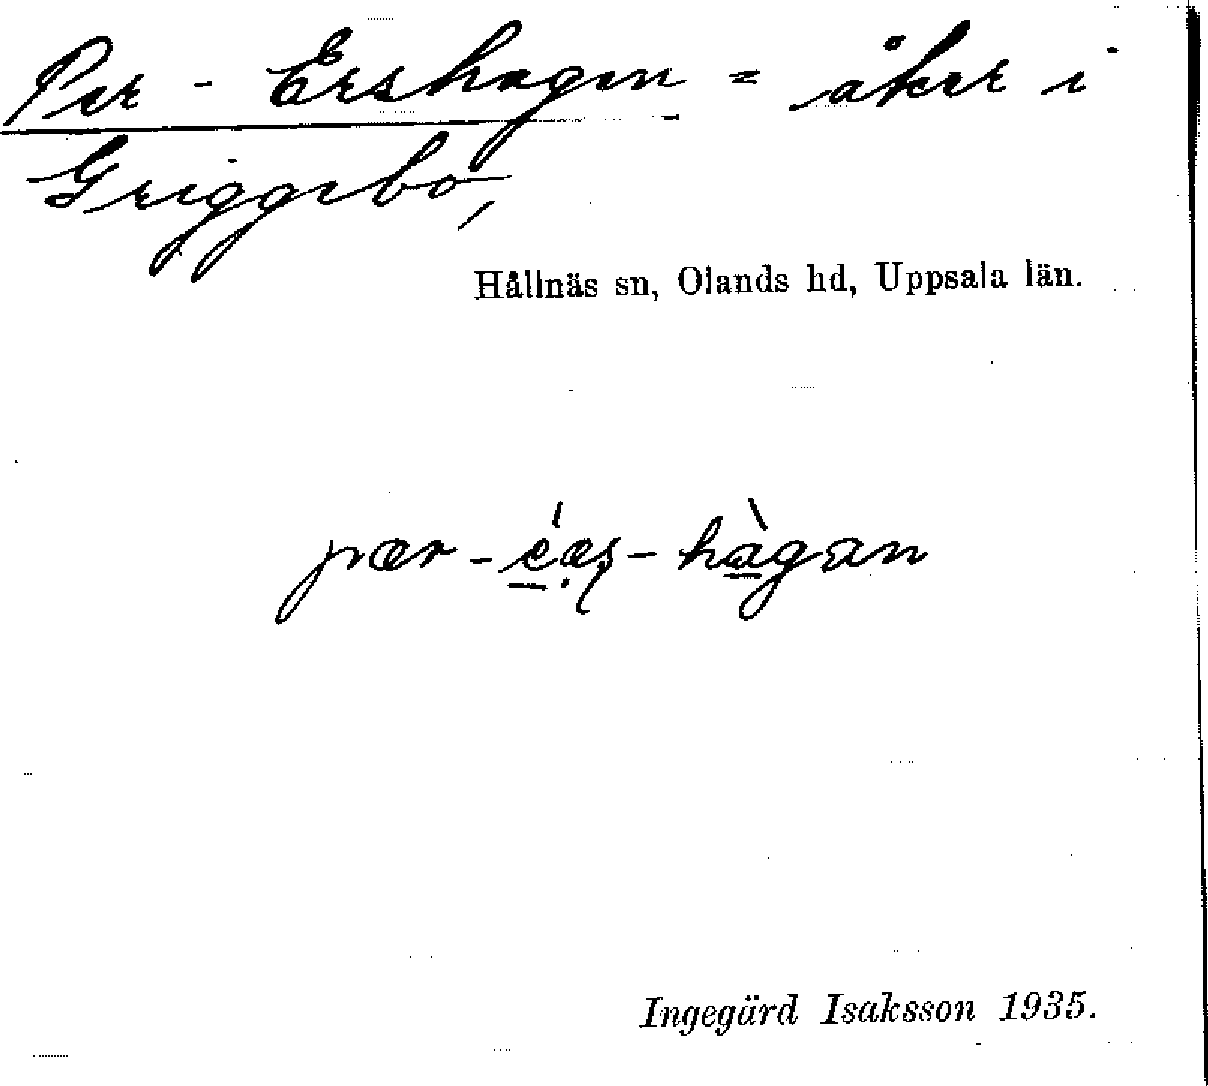 Per - Ershagen = åker i
Griggebo,
Hållnäs sn, Olands hd, Uppsala län.
Ingegärd Isaksson 1935.